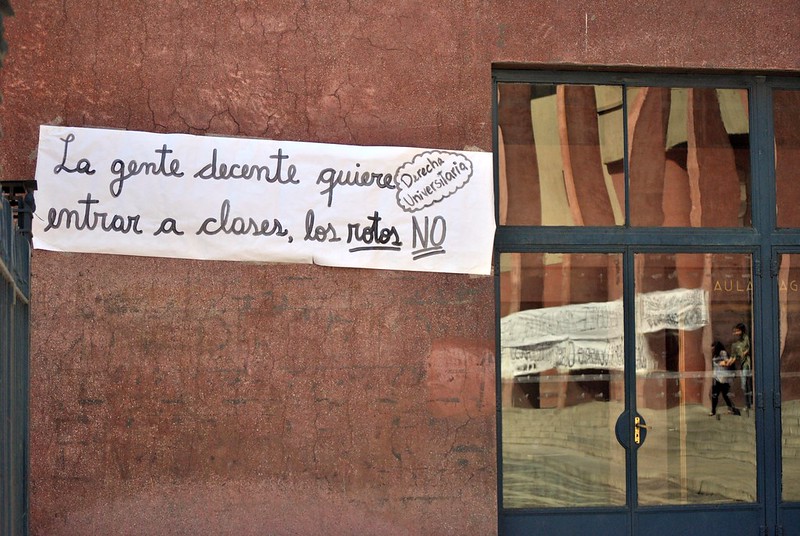 La gente decente quiere
entrar a clases, los rotos NO
Derecha
Universitaria
AULA